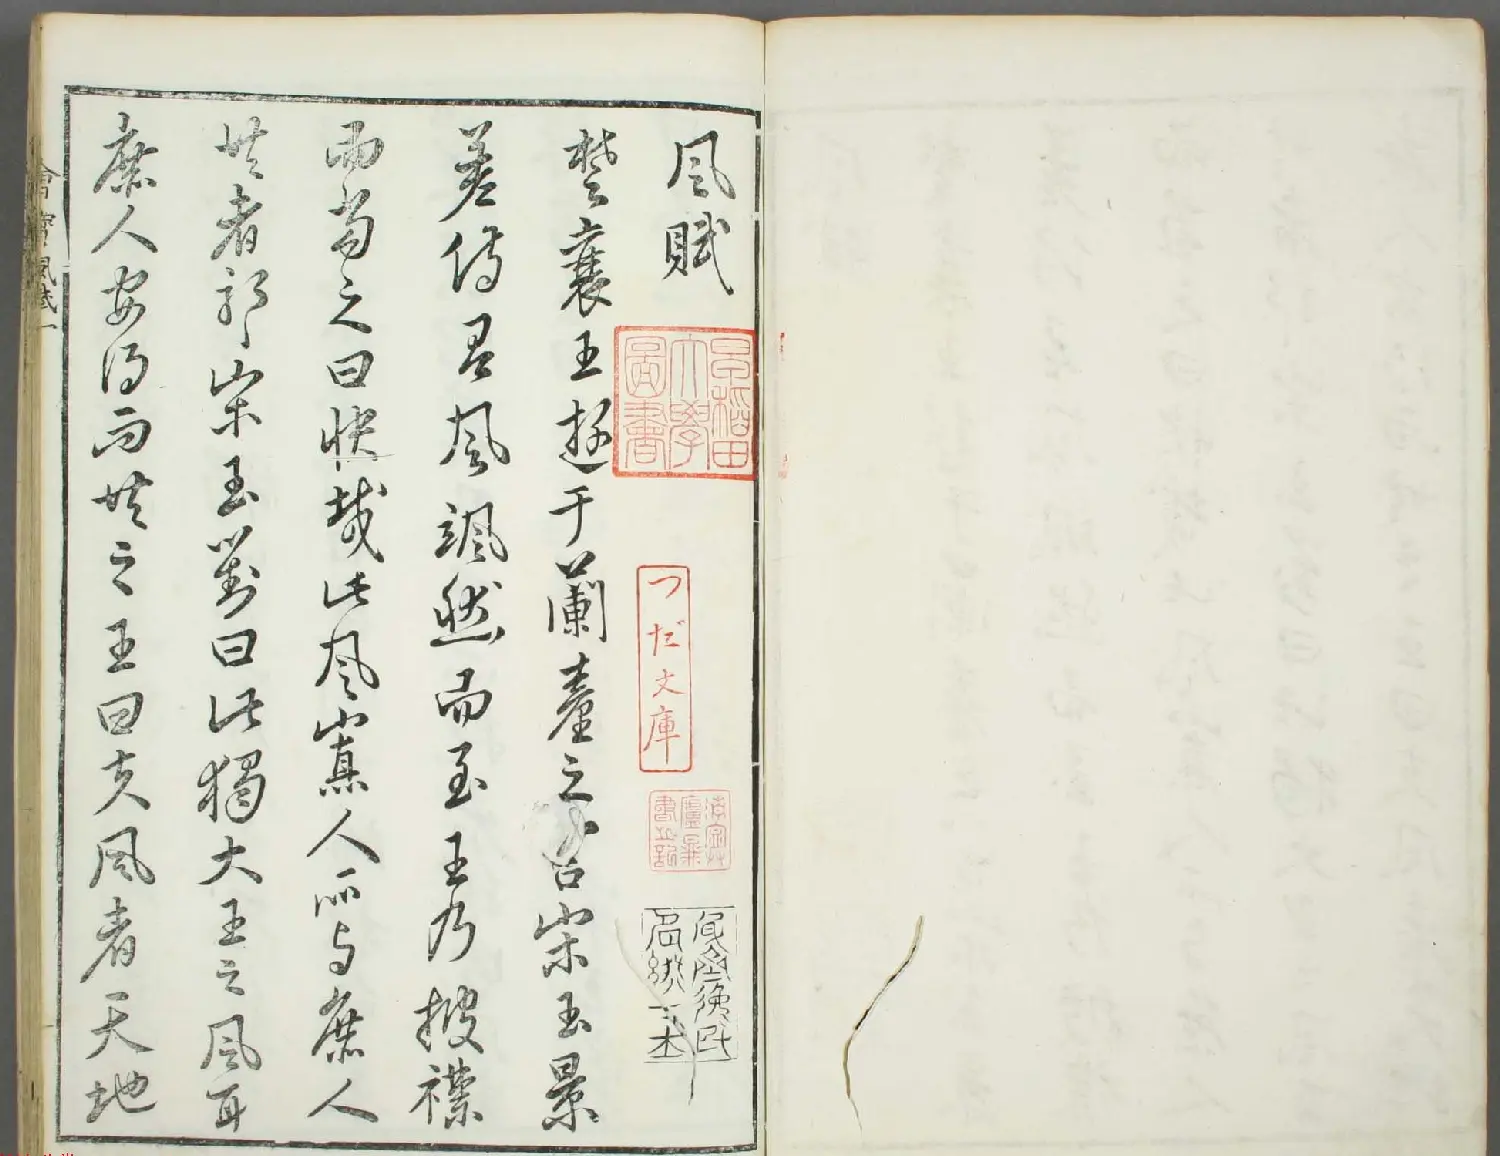 風賦
早稻田大學圖書
つだ文庫
楚襄王遊于蘭臺之宮宋玉景
差侍有風颯然而至王乃披襟
而當之曰快哉此風寡人所与庶人
共者耶宋玉對曰此獨大王之風耳
庶人安得而共之王曰夫風者天地